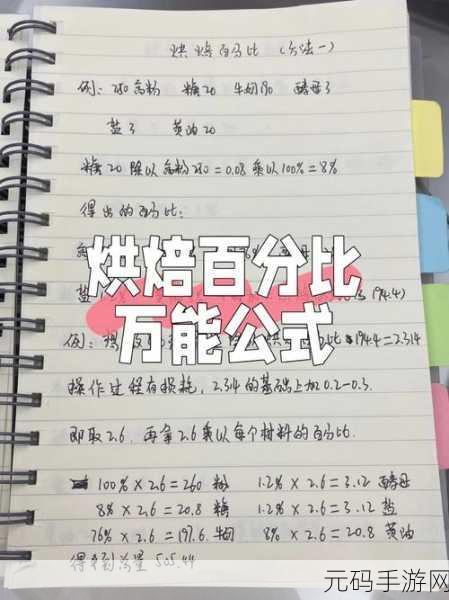 烘焙百分比（方法一）
例：250高粉 糖20 牛奶190 酵母3
盐3 黄油20
糖20除以高粉250=0.08乘以100%=8%
得出的百分比：
烘焙百分比
盐 194.4)
万能公式
例： 194.4=2.314
操作过程有损耗，2.314的基础上加0.2-0.3.
即取2.6，再拿2.6乘以每个材料的百分比.
100%×2.6=260粉 1.2%×2.6=3.12酵母
8%×2.6=20.8糖 1.2%×2.6=3.12盐
76%×2.6=197.6牛奶 8%×2.6=20.8黄油
得到总量505.44
元码手游网